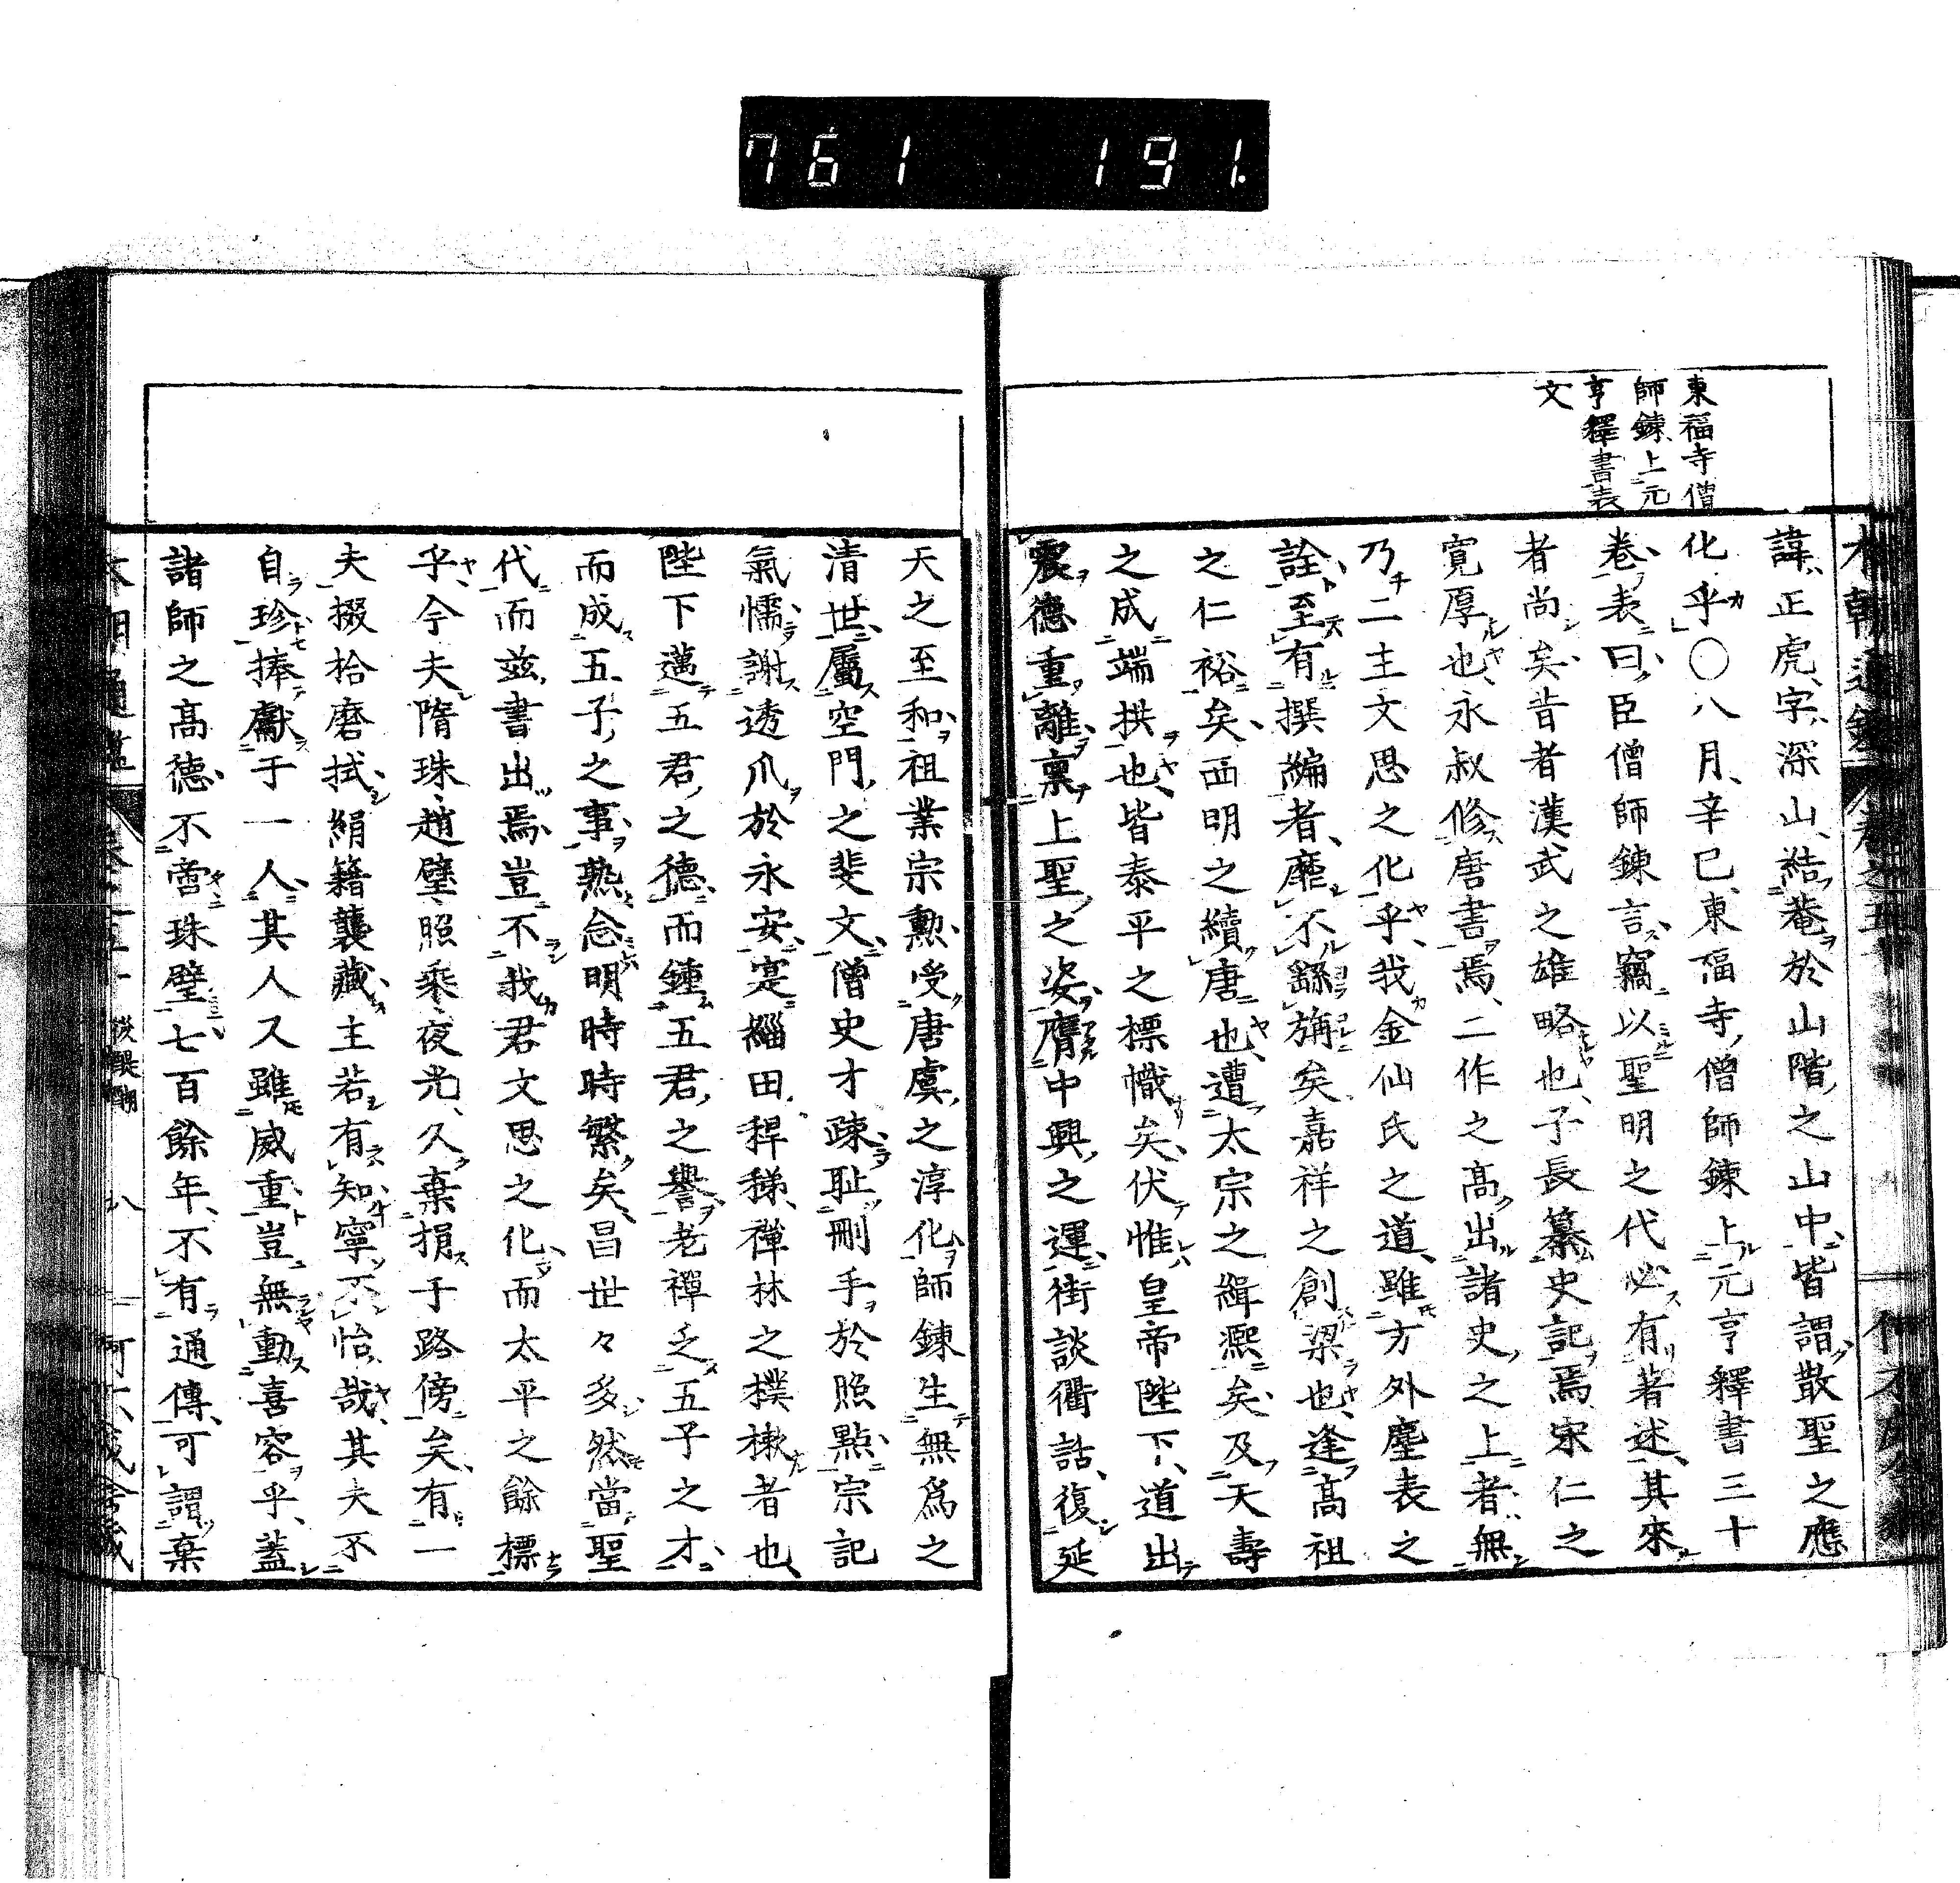 761 191.
東福寺僧
師錬上元
亨釋書表
文
諱正虎字深山結菴於山階之山中皆謂散聖之應
化乎○八月辛巳東福寺僧師錬上元亨釋書三十
卷表曰臣僧師錬言竊以聖明之代必有著述其來
者尚矣昔者漢武之雄略也子長纂史記焉宋仁之
寛厚也永叔修唐書焉二作之高出諸史之上者無
乃二主文思之化乎我金仙氏之道雖方外塵表之
詮至有撰編者靡不繇旃矣嘉祥之創梁也逢高祖
之仁裕矣西明之續唐也遭太宗之緝熙矣及天壽
之成端拱也皆泰平之標幟矣伏惟皇帝陛下道出
震德重離禀上聖之姿膺中興之運街談衢話復延
天之至和祖業宗勲受唐虞之淳化師錬生無爲之
清世屬空門之斐文僧史才疎耻刪手於照點宗記
氣懦謝透爪於永安寔緇田稗稊禪林之樸樕者也
陛下邁五君之德而鍾五君之譽老禪乏五子之才
而成五子之事熟念明時時繁矣昌世々多然當聖
代而茲書出焉豈不我君文思之化而太平之餘標
乎今夫隋珠趙璧照乘夜光久棄捐于路傍矣有一
夫掇拾磨拭絹籍襲藏主若有知寧不怡哉其夫不
自珍捧獻于一人其人又雖威重豈無動喜容乎蓋
諸師之高德不啻珠璧七百餘年不有通傳可謂棄
後醍醐
八